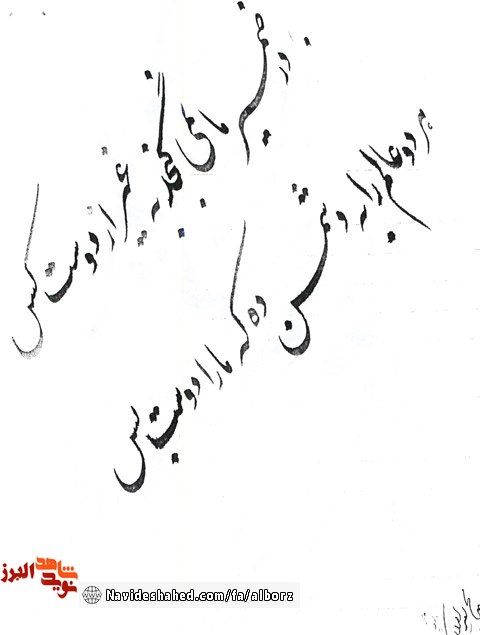 در ضمیر ما نمی گنجد به غیر از دوست کس
هر دو عالم را به دشمن ده که ما را دوست بس
نوید شاهد البرز
Navideshahed.com/fa/alborz